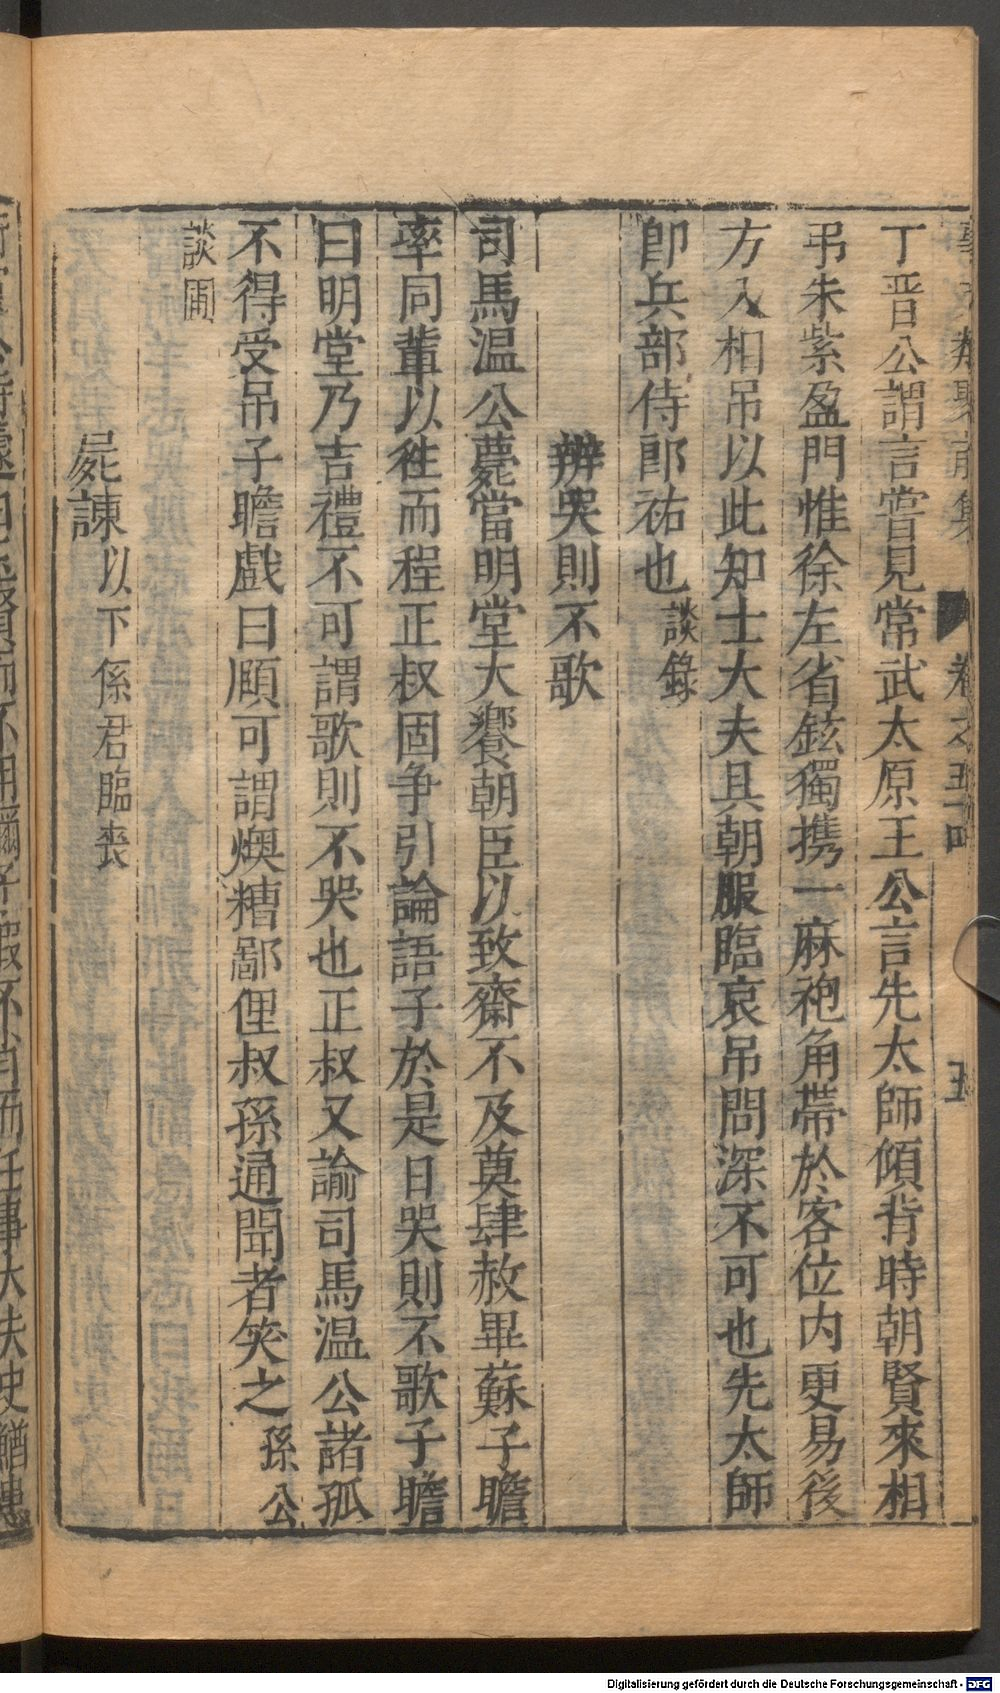 事文類聚前集 卷之五十四 五
丁晋公謂言嘗見常武太原王公言先太師傾背時朝賢來相
弔朱紫盈門惟徐左省鉉獨携一麻袍角帶於客位内更易後
方入相吊以此知士大夫具朝服臨哀吊問深不可也先太師
卽兵部侍郎祐也談錄
辨哭則不歌
司馬温公薨當明堂大饗朝臣以致齋不及奠肆赦畢蘇子瞻
率同輩以徃而程正叔固争引論語子於是日哭則不歌子瞻
曰明堂乃吉禮不可謂歌則不哭也正叔又諭司馬温公諸孤
不得受吊子瞻戲曰頋可謂燠糟鄙俚叔孫通聞者笑之孫公
談圃
屍諫以下係君臨喪
Digitalisierung gefördert durch die Deutsche Forschungsgemeinschaft - DFG